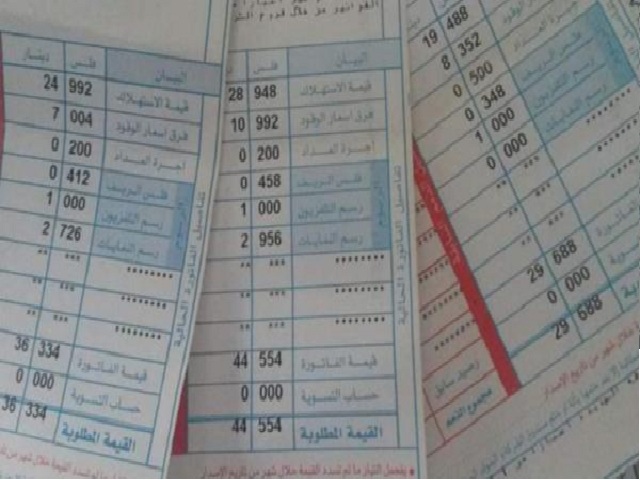 البيان فلس دينار
قيمة الاستهلاك 992 24
فرق اسعار الوقود 004 7
اجرة العداد 200 0
فلس الريف 412 0
رسم التلفزيون 000 1
رسم النفايات 726 2
******** *** **
******** *** **
******** *** **
قيمة الفاتورة 334 36
حساب التسوية 000 0
القيمة المطلوبة 334 36
الرسوم
تفاصيل الفاتورة الحالية
البيان فلس
قيمة الاستهلاك 948 28
فرق اسعار الوقود 992 10
اجرة العداد 200 0
فلس الريف 458 0
رسم التلفزيون 000 1
رسم النفايات 956 2
******** *** **
******** *** **
******** *** **
قيمة الفاتورة 554 44
حساب التسوية 000 0
القيمة المطلوبة 554 44
الرسوم
تفاصيل الفاتورة الحالية
يفصل التيار ما لم تسدد القيمة خلال شهر من تاريخ الاصدار
488 19
الوقود 352 8
العداد 500 0
فلس الريف 348 0
رسم التلفزيون 000 1
رسم النفايات 000 0
688 29
000 0
688 29
رصيد سابق
مجموع الذمم
خلال شهر من تاريخ الاصدار